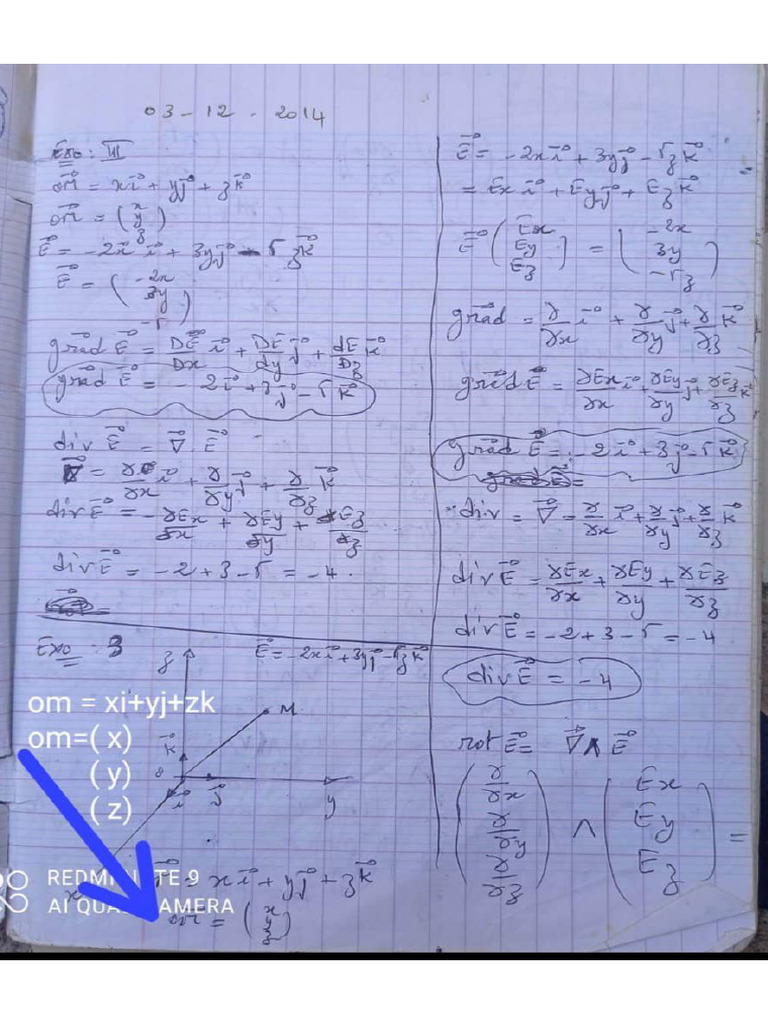 03-12-2014
Exo: III
om⃗ = xi⃗ + yj⃗ + zk⃗
om⃗ = (x
y
z)
E⃗ = -2x i⃗ + 3yj⃗ - 5zk⃗
E⃗ = (-2x
3y
-5)
grad⃗ E⃗ = DE⃗/Dx i⃗ + DE/dy j⃗ + dE/Dz k⃗
grad⃗ E⃗ = -2i⃗ + 3j⃗ - 5k⃗
div E⃗ = ∇⃗ . E⃗
∇⃗ = ∂/∂x i⃗ + ∂/∂y j⃗ + ∂/∂z k⃗
div E⃗ = -∂Ex/∂x + ∂Ey/∂y + ∂Ez/∂z
div E⃗ = -2+3-5 = -4.
Exo : 3
E⃗ = -2xi⃗ + 3yj⃗ - 5zk⃗
z
M
om = xi+yj+zk
om=( x)
( y)
( z)
k⃗
o
i⃗
j⃗
y
x
= xi⃗ + yj⃗ + zk⃗
REDMI NOTE 9
AI QUAD CAMERA
om⃗ = (x
y
z)
E⃗ = -2xi⃗ + 3yj⃗ - 5zk⃗
= Ex i⃗ + Ey j⃗ + Ez k⃗
E⃗ (Ex
Ey
Ez) = (-2x
3y
-5z)
grad⃗ = ∂/∂x i⃗ + ∂/∂y j⃗ + ∂/∂z k⃗
grad⃗ E⃗ = ∂Ex/∂x i⃗ + ∂Ey/∂y j⃗ + ∂Ez/∂z k⃗
grad⃗ E⃗ = -2i⃗ + 3j⃗ - 5k⃗
div = ∇⃗ = ∂/∂x i⃗ + ∂/∂y j⃗ + ∂/∂z k⃗
div E⃗ = ∂Ex/∂x + ∂Ey/∂y + ∂Ez/∂z
div E⃗ = -2+3-5 = -4
div E⃗ = -4
rot E⃗ = ∇⃗ ∧ E⃗
(∂/∂x
∂/∂y
∂/∂z) ∧ (Ex
Ey
Ez) =